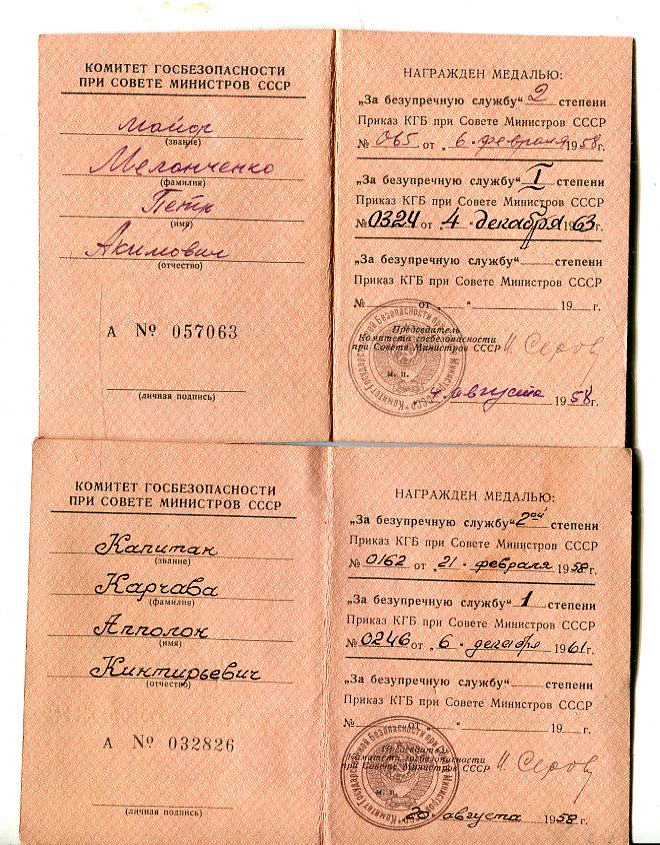 КОМИТЕТ ГОСБЕЗОПАСНОСТИ
ПРИ СОВЕТЕ МИНИСТРОВ СССР
майор
(звание)
Меланченко
(фамилия)
Петр
(имя)
Акимович
(отчество)
А № 057063
(личная подпись)
НАГРАЖДЕН МЕДАЛЬЮ:
„За безупречную службу“ 2 степени
Приказ КГБ при Совете Министров СССР
№ 065 от „6“ февраля 1958г.
„За безупречную службу“ I степени
Приказ КГБ при Совете Министров СССР
№ 0324 от „4“ декабря 1963г.
„За безупречную службу“ степени
Приказ КГБ при Совете Министров СССР
№ от „ “ 19 г.
Председатель
Комитета госбезопасности
при Совете Министров СССР И Серов
м. п.
„4“ августа 1958г.
КОМИТЕТ ГОСБЕЗОПАСНОСТИ
ПРИ СОВЕТЕ МИНИСТРОВ СССР
Капитан
(звание)
Карчава
(фамилия)
Апполон
(имя)
Кинтирьевич
(отчество)
А № 032826
(личная подпись)
НАГРАЖДЕН МЕДАЛЬЮ:
„За безупречную службу“ 2ой степени
Приказ КГБ при Совете Министров СССР
№ 0162 от „21“ февраля 1958г.
„За безупречную службу“ 1 степени
Приказ КГБ при Совете Министров СССР
№ 0246 от „6“ декабря 1961г.
„За безупречную службу“ степени
Приказ КГБ при Совете Министров СССР
№ от „ “ 19 г.
Председатель
Комитета госбезопасности
при Совете Министров СССР И Серов
м. п.
„20“ августа 1958г.